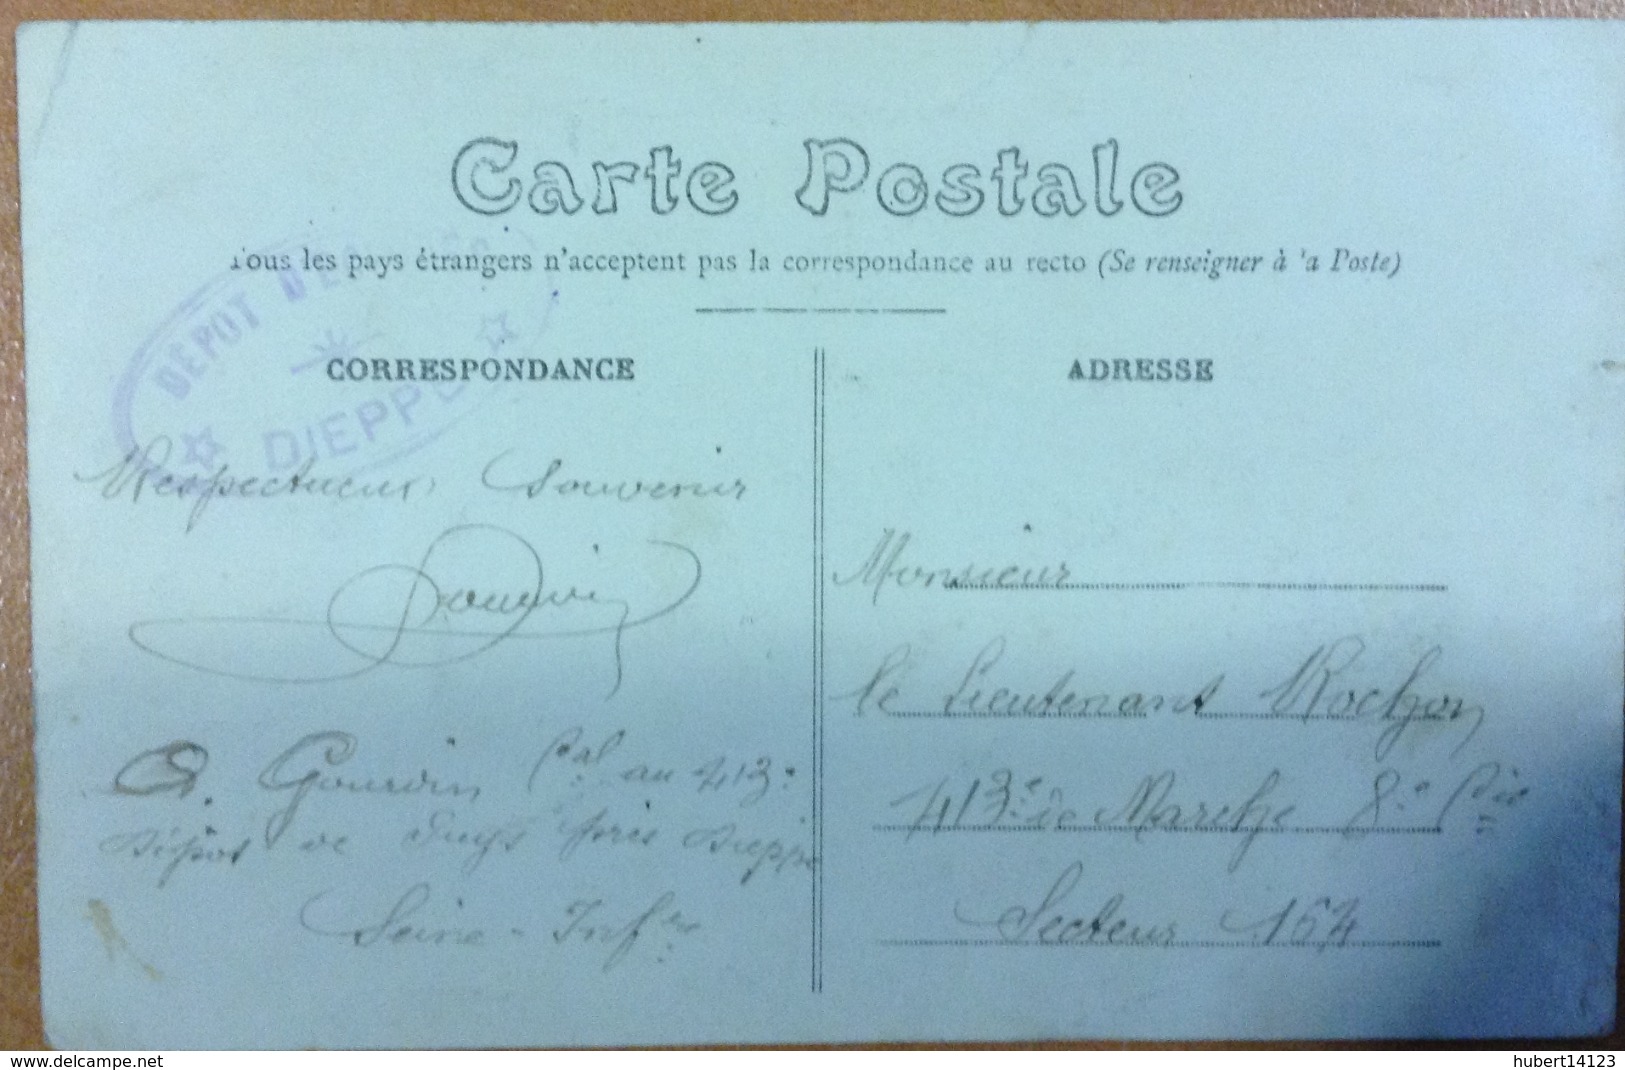 Carte Postale
Tous les pays étrangers n'acceptent pas la correspondance au recto (Se renseigner à 'a Poste)
DEPOT
DIEPPE
CORRESPONDANCE
Respectueux Souvenir
G. Gourdin Cal au 413e
dépot de près Dieppe
Seine-Infre
ADRESSE
Monsieur
le Lieutenant Rochon
413e de Marche 8e Cie
Secteur 164
delcampe.net
hubert14123